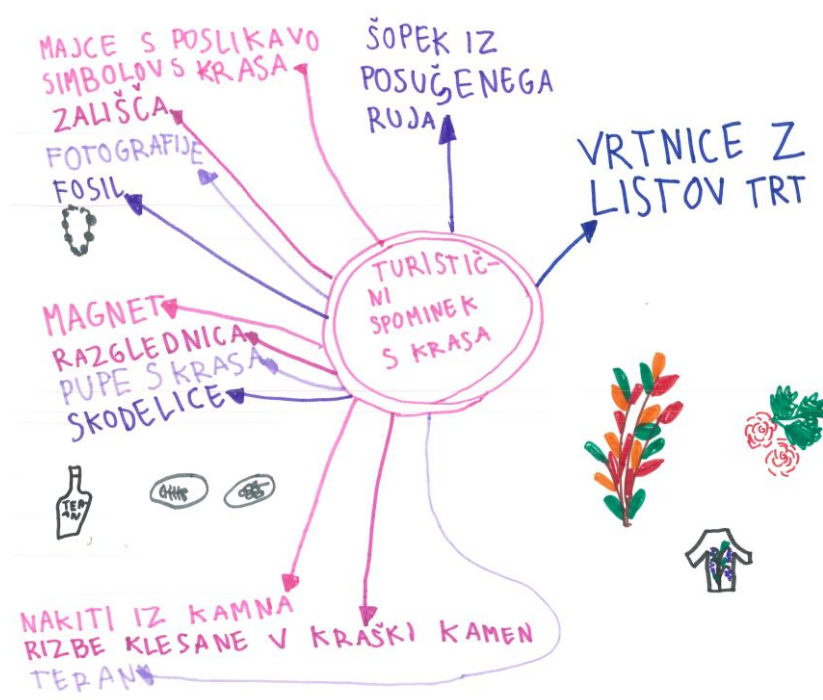 MAJCE S POSLIKAVO
SIMBOLOV S KRASA
ZALIŠČA
FOTOGRAFIJE
FOSIL
ŠOPEK IZ
POSUŠENEGA
RUJA
VRTNICE Z
LISTOV TRT
TURISTIČ-
NI
SPOMINEK
S KRASA
MAGNET
RAZGLEDNICA
PUPE S KRASA
SKODELICE
TER
AN
NAKITI IZ KAMNA
RIZBE KLESANE V KRAŠKI KAMEN
TERAN